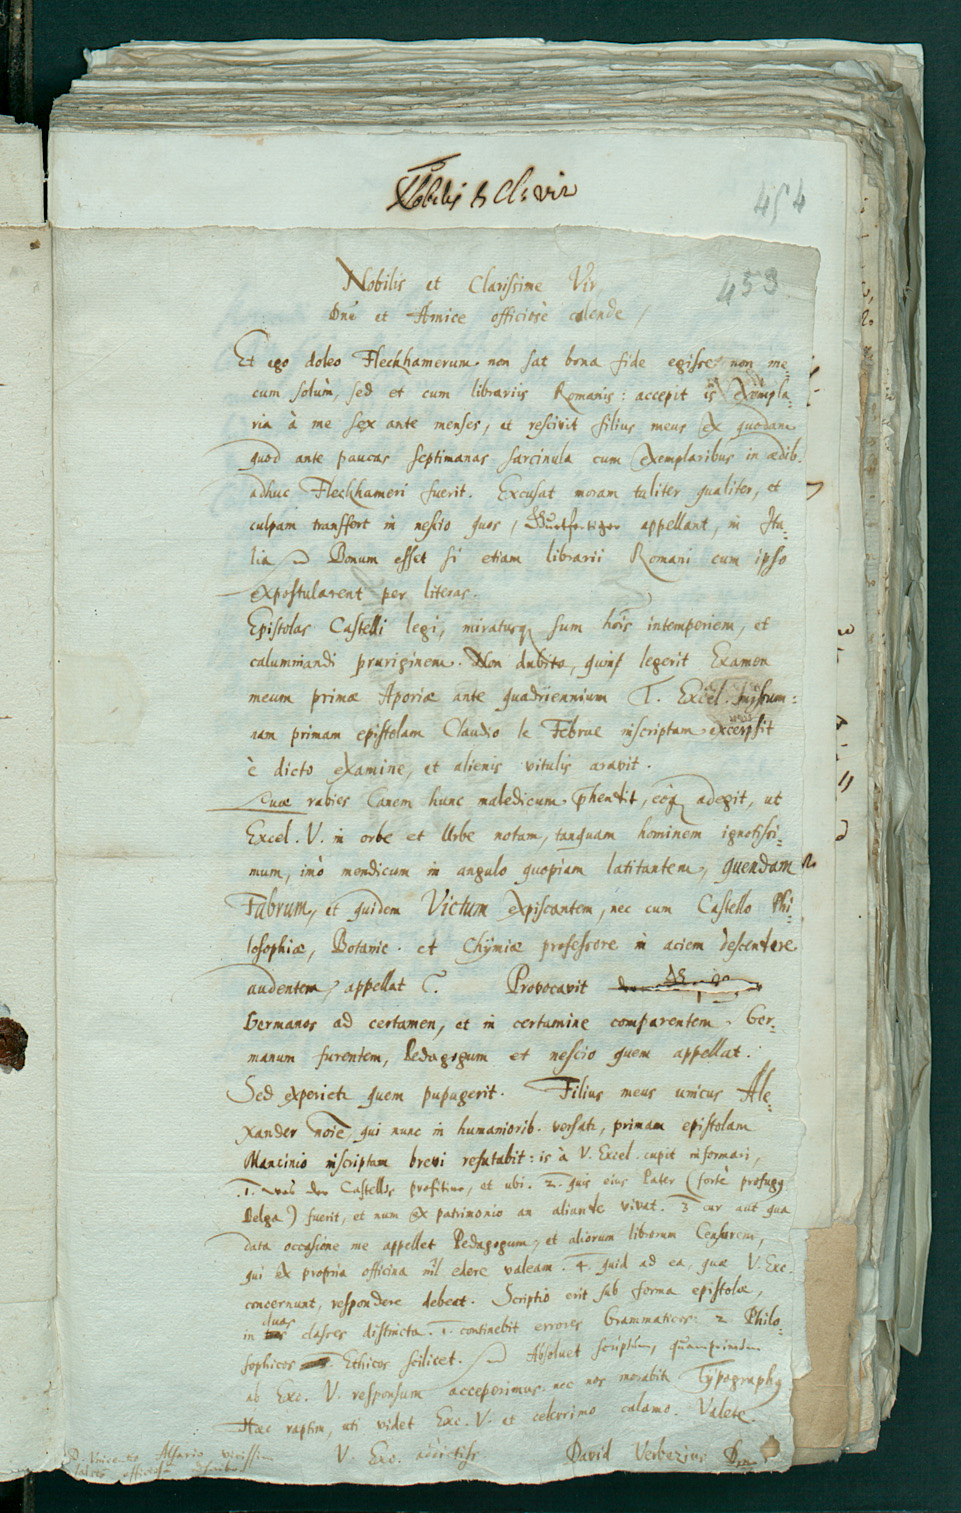 Nobilis & Cl: vir
454
453
Nobilis et Clarissime Vir
Dnē et Amice officiosè colende /
Et ego doleo Fleckhamerum non sat bona fide egisse non me-
cum solùm, sed et cum librariis Romanis: accepit is exempla-
ria à me sex ante menses, et rescivit filius meus ex quodam
quod ante paucas septimanas sarcinula cum exemplaribus in ædib.
adhuc Fleckhameri fuerit. Excusat moram taliter qualiter, et
culpam transfert in nescio quos, appellant, in Ita-
lia Bonum esset si etiam librarii Romani cum ipso
expostularent per literas.
Epistolas Castelli legi, miratusq sum hoīs intemperiem, et
calumniandi pruriginem. Non dubito, quin legerit Examen
meum primæ Aporiæ ante quadriennium T. Excel. missum:
nam primam epistolam Claudio le Febrae inscriptam excerpsit
è dicto examine, et alienis vitulis aravit.
rabies Canem hunc maledicum eóq adegit, ut
Excel. V. in orbe et Urbe notum, tanquam hominem ignotissi-
mum, imò mendicum in angulo quopiam latitantem, quendam
Fabrum, et quidem Victum expiscantem, nec cum Castello Phi-
losophiæ, Botanic. et Chÿmiæ professore in aciem descendere
audentem, appellat. Provocavit
Germanos ad certamen, et in certamine comparentem Ger-
manum furentem, Pedagogum et nescio quem appellat.
Sed experietr quem pupugerit. Filius meus unicus Ale-
xander noīe, qui nunc in humaniorib. versatr, primam epistolam
Mancinio inscriptam brevi refutabit: is à V. Excel. cupit informari,
1. Castellus profitetur, et ubi. 2. quis eius Pater (fortè profugg
Belga) fuerit, et num ex patrimonio an aliunde vivat. 3 cur aut qua
data occasione me appellet Pedagogum, et aliorum librorum Censorem,
qui ex propria officina nil edere valeam. 4. quid ad ea, quæ V. Exc.
concernunt, respondere debeat. Scriptio erit sub forma epistolæ,
in duas classes distincta. 1. continebit errores Grammaticos 2 Philo-
sophicos Ethicos scilicet. Absolvet scriptum,
ab Exc. V. responsum acceperimus. nec nos morabitr Typographg
Hæc raptim, uti videt Exc. V. et celerrimo calamo. Valete.
V. Exc. addictiss
David Verbezius D.